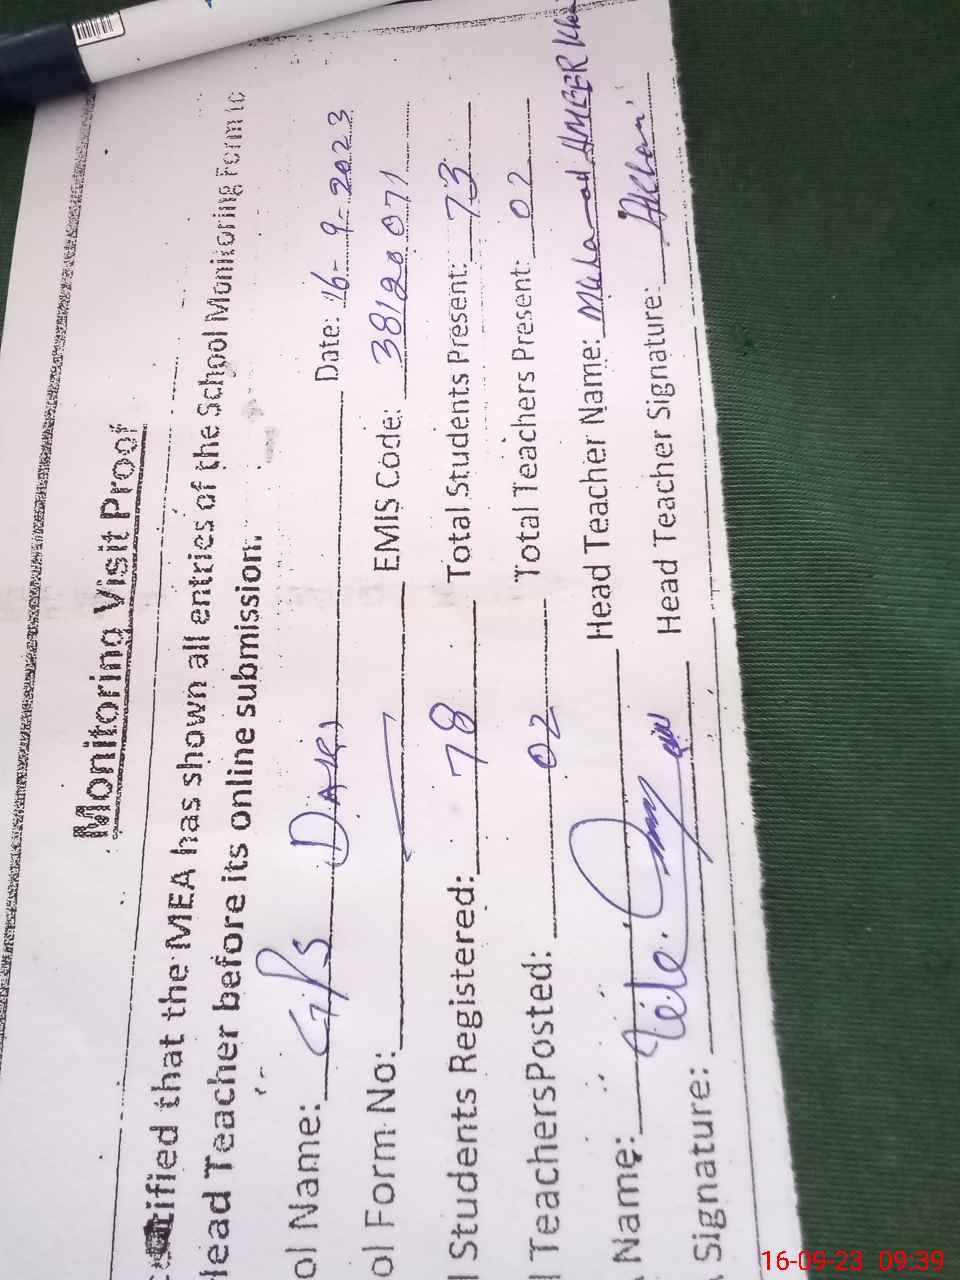 Monitoring Visit Proof
tified that the MEA has shown all entries of the School Monitoring Form to
Head Teacher before its online submission.
ol Name: GPS Date: 16-9-2023
ol Form No: EMIS Code: 38120071
l Students Registered: 78 Total Students Present: 73
l TeachersPosted: 02 Total Teachers Present: 02
Name: Head Teacher Name: AMEER Khan
Signature: Head Teacher Signature:
16-09-23 09:39